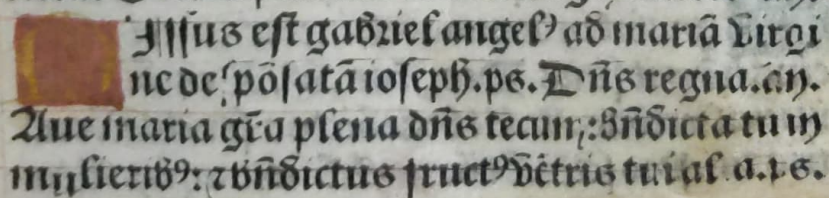 Issus est gabriel angelꝰ ad mariā virgi
ne despōsatā ioseph. ps. Dn̄s regna. an̄.
Aue maria gr̄a plena dn̄s tecum: bn̄dicta tu in
mulieribꝰ: ⁊ bn̄dictus fructꝰ vētris tui al̄. a. ps.